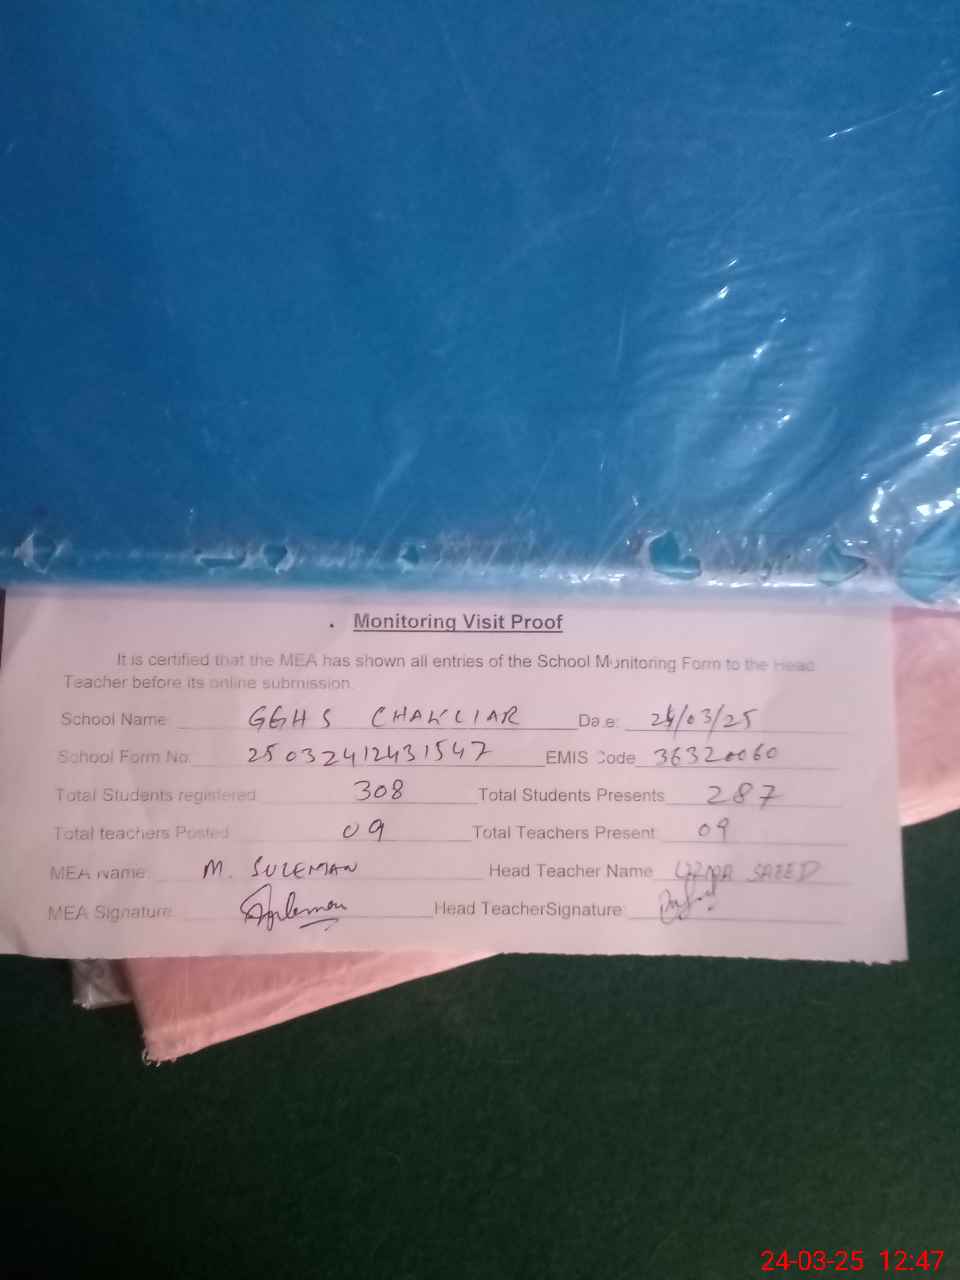 Monitoring Visit Proof
It is certified that the MEA has shown all entries of the School Monitoring Form to the Head
Teacher before its online submission.
School Name: GGHS CHAKLIAR Date: 24/03/25
School Form No: 25032412431547 EMIS Code 36320060
Total Students registered 308 Total Students Presents 287
Total teachers Posted 09 Total Teachers Present: 09
MEA Name: M. SULEMAN Head Teacher Name UZMA SAEED
MEA Signature: Suleman Head TeacherSignature:
24-03-25 12:47